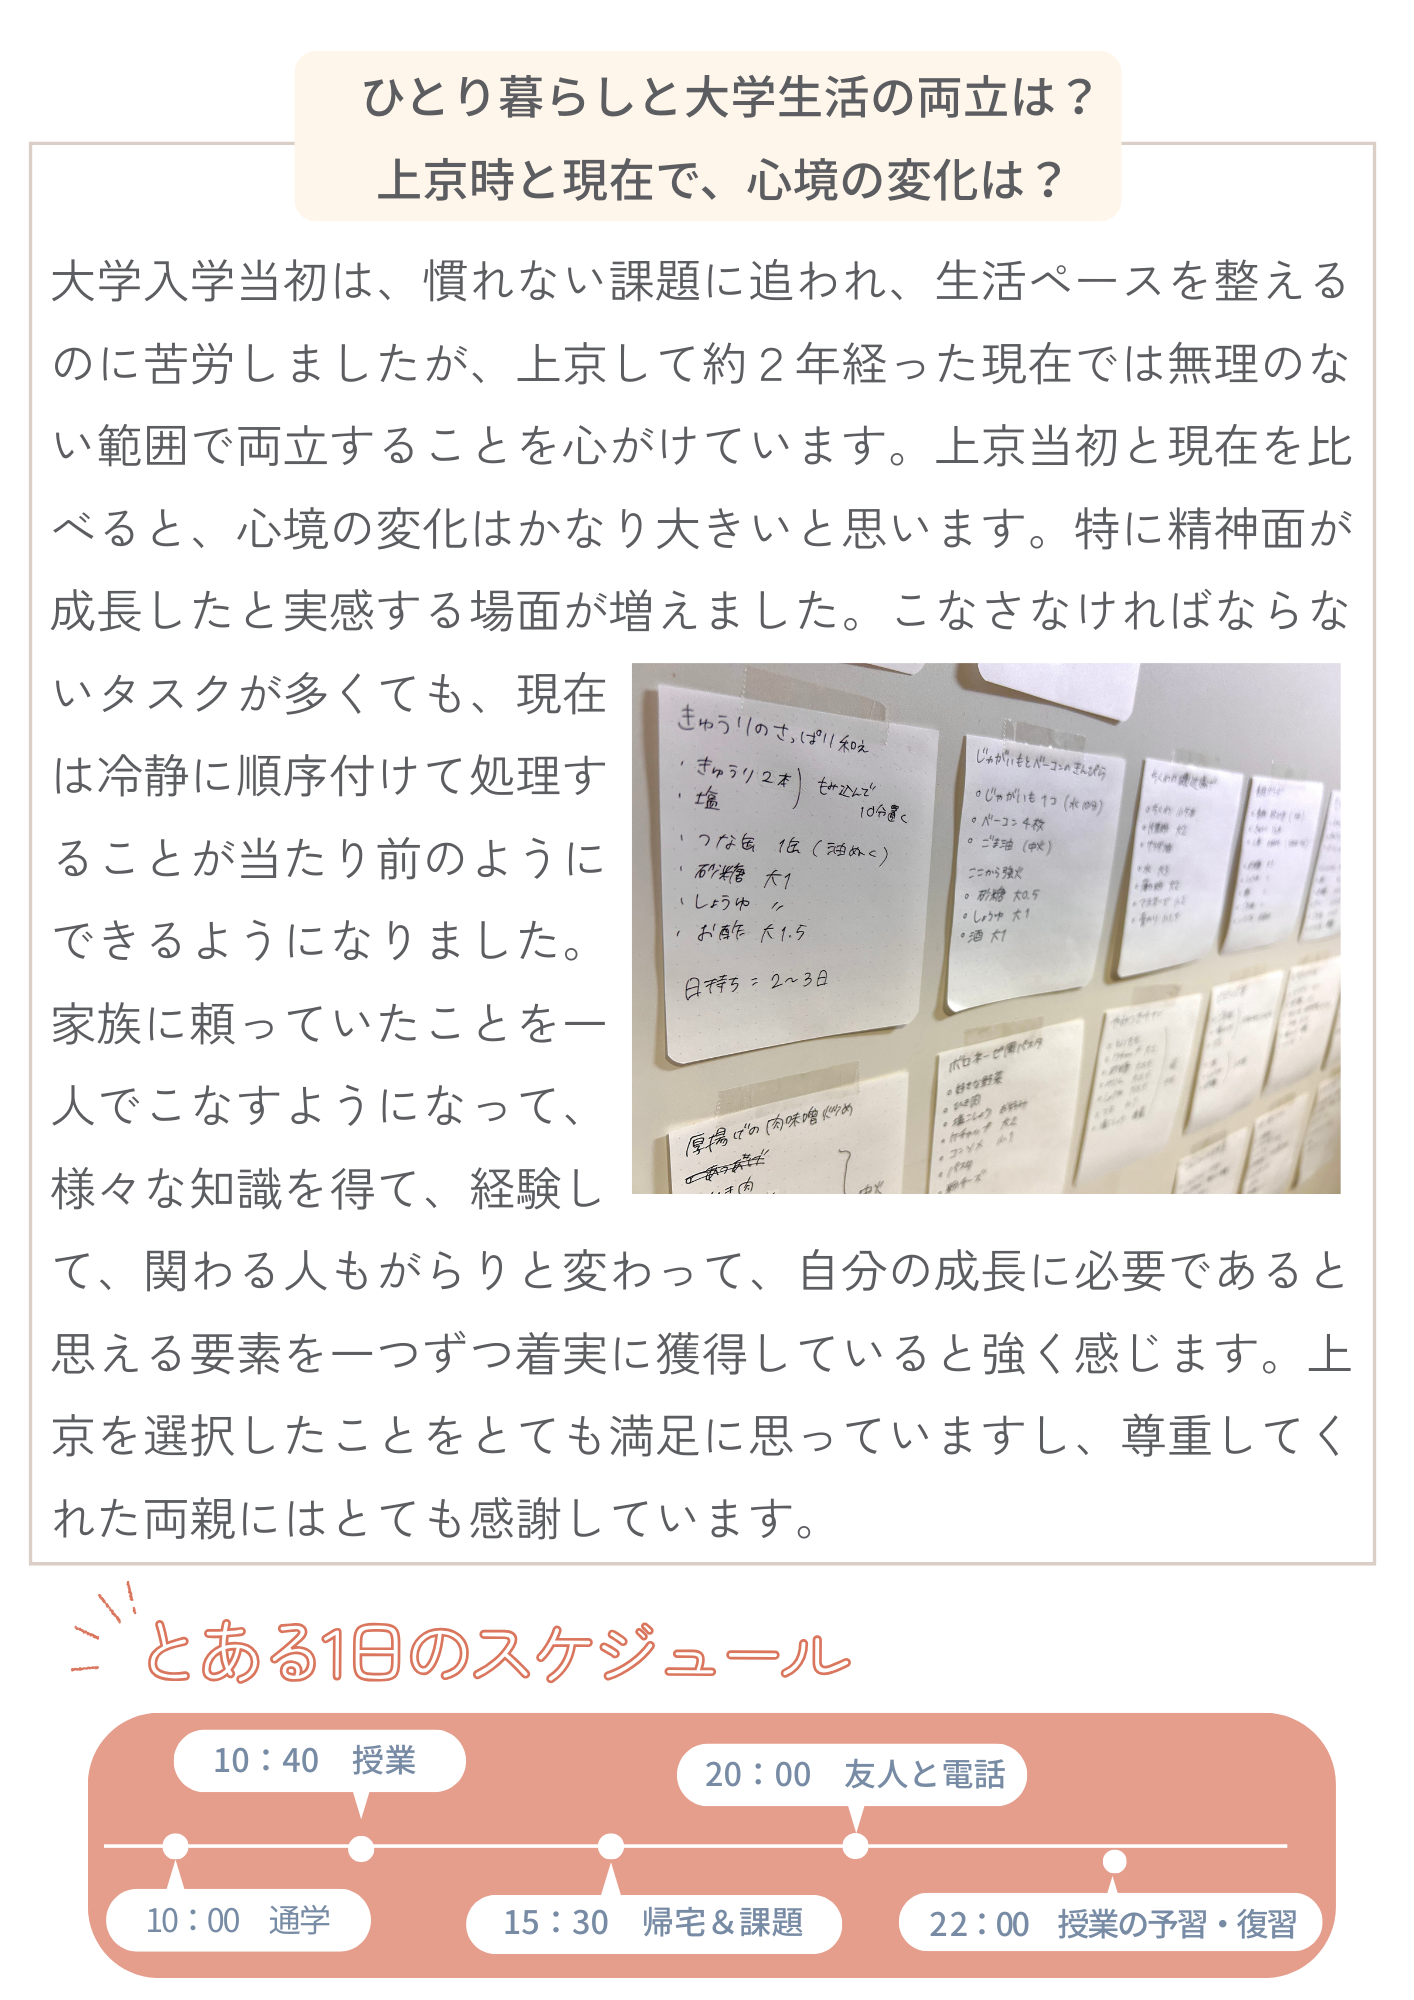 ひとり暮らしと大学生活の両立は？
上京時と現在で、心境の変化は？
大学入学当初は、慣れない課題に追われ、生活ペースを整える
のに苦労しましたが、上京して約２年経った現在では無理のな
い範囲で両立することを心がけています。上京当初と現在を比
べると、心境の変化はかなり大きいと思います。特に精神面が
成長したと実感する場面が増えました。こなさなければならな
いタスクが多くても、現在
は冷静に順序付けて処理す
ることが当たり前のように
できるようになりました。
家族に頼っていたことを一
人でこなすようになって、
様々な知識を得て、経験し
て、関わる人もがらりと変わって、自分の成長に必要であると
思える要素を一つずつ着実に獲得していると強く感じます。上
京を選択したことをとても満足に思っていますし、尊重してく
れた両親にはとても感謝しています。
きゅうりのさっぱり和え
・きゅうり2本
・塩
もみ込んで
10分置く
・つな缶 1缶（油ぬく）
・砂糖 大1
・しょうゆ 〃
・お酢 大1.5
日持ち＝2〜3日
じゃがいもとベーコンのきんぴら
・じゃがいも 1コ
・ベーコン 4枚
・ごま油（中火）
ここから強火
・砂糖 大0.5
・しょうゆ 大1
・酒 大1
厚揚げの肉味噌炒め
ボロネーゼ風パスタ
・好きな野菜
・ひき肉
・塩こしょう
・ケチャップ 大2
・コンソメ
・パスタ
・粉チーズ
とある1日のスケジュール
10：40 授業
20：00 友人と電話
10：00 通学
15：30 帰宅＆課題
22：00 授業の予習・復習